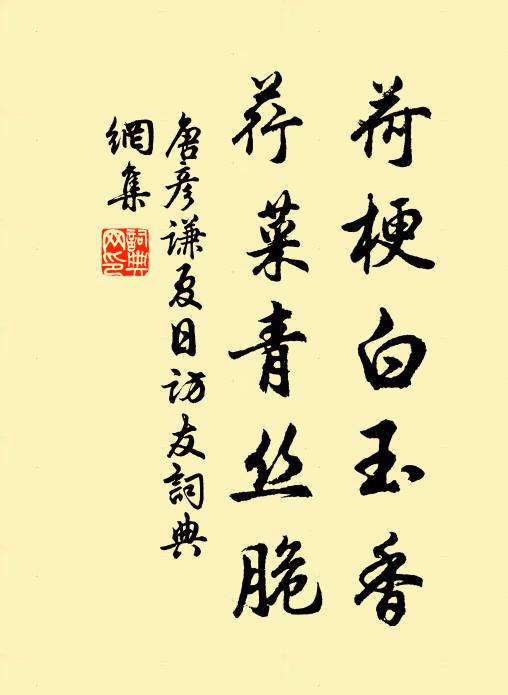 荷梗白玉香
荇菜青丝脆
唐彦谦夏日访友詞典
網集
詞典网印